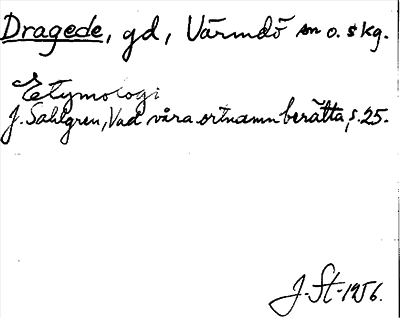 Dragede, gd, Värmdö sn o. skg.
Etymologi
J. Sahlgren, Vad våra ortnamn berätta, s. 25.
J. St. 1956.